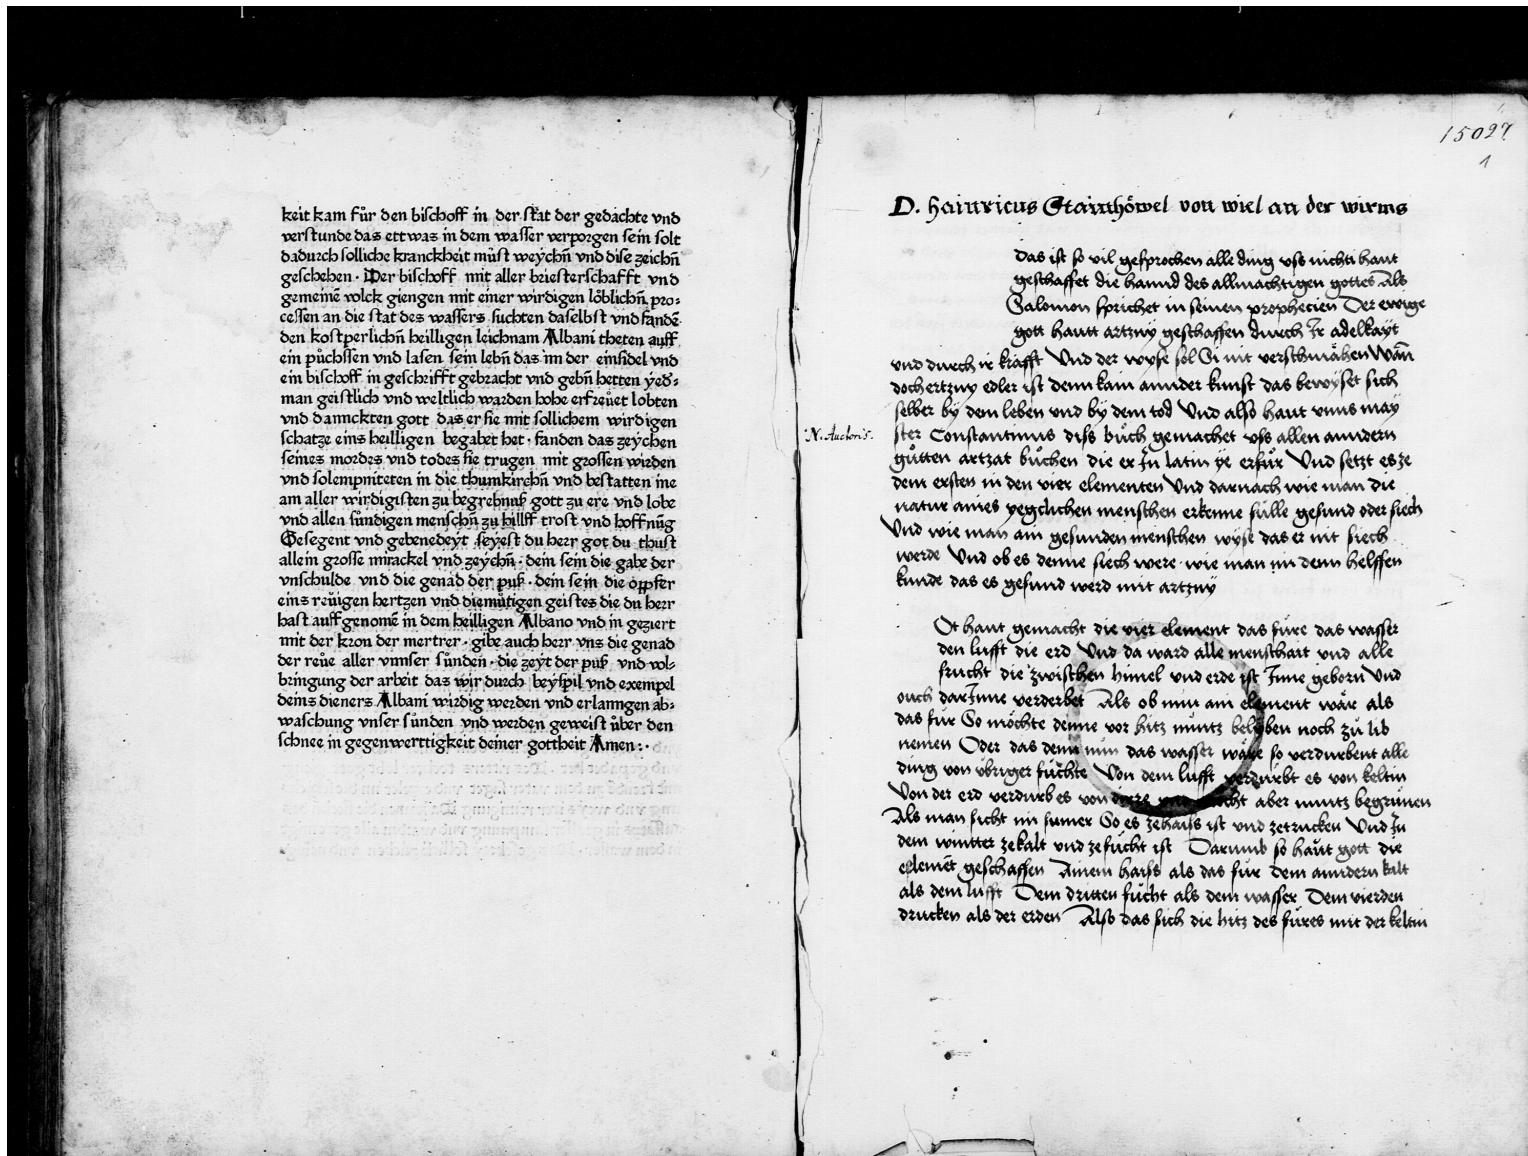 keit kam für den bischoff in der stat der gedachte vnd
verstunde das ettwas in dem wasser verporgen sein solt
dadurch solliche kranckheit müst weÿchn̄ vnd dise zeichn̄
geschehen · Der bischoff mit aller briesterschafft vnd
gemeinē volck giengen mit einer wirdigen löblichn̄ pro⸗
cessen an die stat des wassers suchten daselbst vnd fandē
den kostperlichn̄ heilligen leichnam Albani theten auff
ein püchssen vnd lasen sein lebn̄ das im der einsidel vnd
ein bischoff in geschrifft gebracht vnd gebn̄ hetten ÿed⸗
man geistlich vnd weltlich warden hohe erfreuet lobten
vnd dannckten gott das er sie mit sollichem wirdigen
schatze eins heilligen begabet het · fanden das zeÿchen
seines mordes vnd todes sie trugen mit grossen wirden
vnd solempniteten in die thumkirchn̄ vnd bestatten ine
am aller wirdigisten zu begrebnuß gott zu ere vnd lobe
vnd allen sündigen menschn̄ zu hillff trost vnd hoffnūg
Gesegent vnd gebenedeÿt seÿest du herr got du thust
allein grosse mirackel vnd zeÿchn̄ · dein sein die gabe der
vnschulde vnd die genad der puß · dein sein die opfer
eins reüigen hertzen vnd diemütigen geistes die du herr
hast auff genomē in dem heilligen Albano vnd in geziert
mit der kron der mertrer · gibe auch herr vns die genad
der reüe aller vnnser sünden · die zeÿt der puß vnd vol⸗
bringung der arbeit das wir durch beÿspil vnd exempel
deins dieners Albani wirdig werden vnd erlanngen ab⸗
waschung vnser sünden vnd werden geweist über den
schnee in gegenwerttigkeit deiner gottheit Amen :·
15027
1
D. hainricus Stainhöwel von wiel an der wirms
Das ist so vil gesprochen alle ding vss nichti haut
geschaffet die hannd des allmächtigen gottes Als
Salomon sprichet in seinen prophecien Der ewige
gott hautt artzny geschaffen durch Ir adelkayt
vnd durch ir krafft Vnd der wyse sol Si nit verschmähen Wān
doch ertzny edler ist denn kain annder kunst das bewyset sich
selber by dem leben vnd by dem tod Vnd also haut vnns may
N. Auctoris.
ster Constantinus diss buch gemachet vss allen anndern
gutten artzat buchen die er In latin ye erfur Vnd setzt es ze
dem ersten in den vier elementen Vnd darnach wie man die
natur aines yegclichen menschen erkenne sülle gesund oder siech
Vnd wie man ain gesunden menschen wyse das er nit siech
werde Vnd ob es denne siech were · wie man im denn helffen
kunde das es gesund werd mit artzny
Ot haut gemacht die vier element das füre das wasser
den lufft die erd Vnd da ward alle menschait vnd alle
frucht die zwischen himel vnd erde ist Inne geborn Vnd
ouch dar Inne verderbet Als ob nun ain element wär als
das für So möchte denne vor hitz nüntz beliben noch zu lib
nemen Oder das denn nun das wasser wäre so verdurbent alle
ding von übriger füchte Von dem lufft verdürbt es von keltin
Von der erd verdurb es von dürre vnd möcht aber nüntz begrünen
Als man sicht im sumer So es ze haiss ist vnd ze trucken Vnd In
dem wintter ze kalt vnd ze fücht ist Darumb so haut gott die
elemēt geschaffen Ainem haiss als das für dem anndern kalt
als dem lufft Dem dritten fücht als dem wasser Dem vierden
drucken als der erden Also das sich die hitz des füres mit der keltin